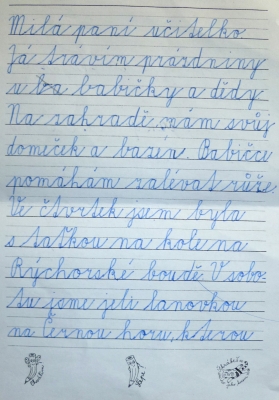 Milá paní učitelko.
Já trávím prázdniny
u babičky a dědy
Na zahradě mám svůj
domeček a bazen. Babičce
pomáhám zalévat růže.
Ve čtvrtek jsem byla
s taťkou na kole na
Rýchorské boudě. V sobo-
tu jsme jeli lanovkou
na Černou horu, kterou